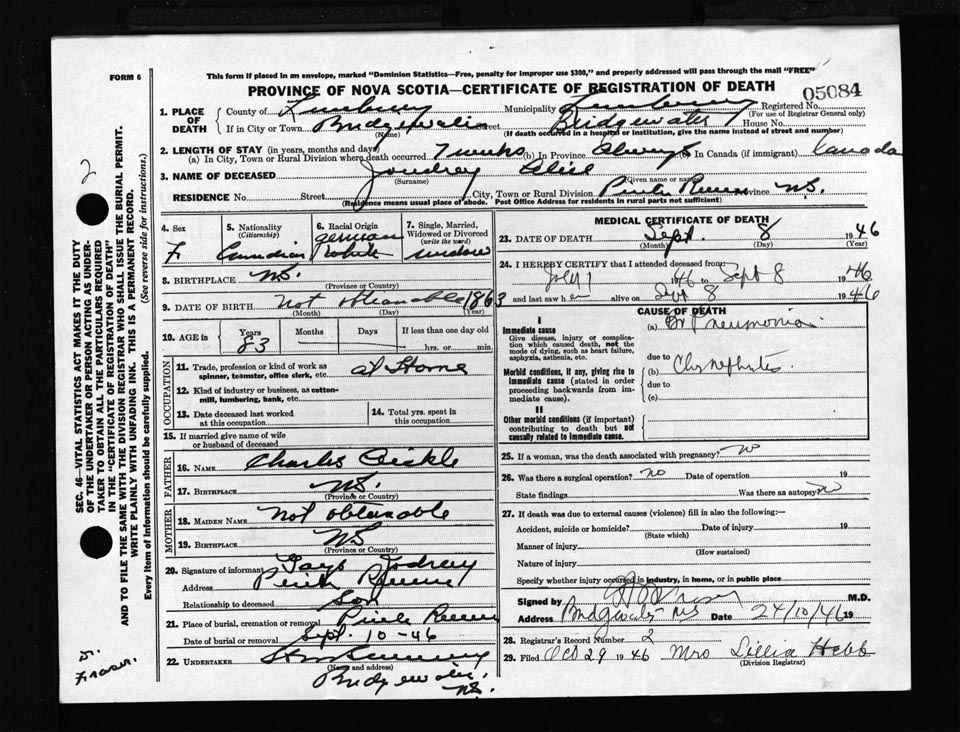 FORM 6
This form if placed in an envelope, marked "Dominion Statistics—Free, penalty for improper use $300," and properly addressed will pass through the mail "FREE"
PROVINCE OF NOVA SCOTIA—CERTIFICATE OF REGISTRATION OF DEATH
05084
1. PLACE OF DEATH
County of Lunenburg Municipality Lunenburg Registered No.
(For use of Registrar General only)
If in City or Town Bridgewater Street Bridgewater House No.
(Name) (If death occurred in a hospital or institution, give the name instead of street and number)
2. LENGTH OF STAY (in years, months and days)
(a) In City, Town or Rural Division where death occurred 7 weeks (b) In Province Always (c) In Canada (if immigrant) Canada
3. NAME OF DECEASED Joudrey Alice
(Surname) (Given name or names)
RESIDENCE No. Street City, Town or Rural Division Province N.S.
(Residence means usual place of abode. Post Office Address for residents in rural parts not sufficient)
4. Sex F
5. Nationality (Citizenship) Canadian
6. Racial Origin German White
7. Single, Married, Widowed or Divorced (write the word) widow
8. BIRTHPLACE N.S.
(Province or Country)
9. DATE OF BIRTH Not obtainable 1863
(Month) (Day) (Year)
10. AGE in Years 83 Months Days If less than one day old
hrs. or min.
OCCUPATION
11. Trade, profession or kind of work as spinner, teamster, office clerk, etc. at Home
12. Kind of industry or business, as cotton-mill, lumbering, bank, etc.
13. Date deceased last worked at this occupation
14. Total yrs. spent in this occupation
15. If married give name of wife or husband of deceased
FATHER
16. NAME Charles
17. BIRTHPLACE N.S.
(Province or Country)
MOTHER
18. MAIDEN NAME Not obtainable
19. BIRTHPLACE N.S.
(Province or Country)
20. Signature of informant Jodrey
Address
Relationship to deceased Son
21. Place of burial, cremation or removal
Date of burial or removal Sept. 10-46
22. UNDERTAKER
(Name and address)
Bridgewater, N.S.
MEDICAL CERTIFICATE OF DEATH
23. DATE OF DEATH Sept. 8 1946
(Month) (Day) (Year)
24. I HEREBY CERTIFY that I attended deceased from:
July 1 46 to Sept 8 1946
and last saw her alive on Sept 8 1946
CAUSE OF DEATH
I
Immediate cause
Give disease, injury or complication which caused death, not the mode of dying, such as heart failure, asphyxia, asthenia, etc.
(a) Br Pneumonia
due to
Morbid conditions, if any, giving rise to immediate cause (stated in order proceeding backwards from immediate cause).
(b) Chr nephritis
due to
(c)
II
Other morbid conditions (if important) contributing to death but not causally related to immediate cause.
25. If a woman, was the death associated with pregnancy? no
26. Was there a surgical operation? no Date of operation 19
State findings Was there an autopsy? no
27. If death was due to external causes (violence) fill in also the following:—
Accident, suicide or homicide? Date of injury 19
(State which)
Manner of injury
(How sustained)
Nature of injury
Specify whether injury occurred in industry, in home, or in public place
Signed by M.D.
Address Bridgewater NS Date 24/10/46 19
28. Registrar's Record Number 2
29. Filed Oct 29 1946 Mrs Lillia Hebb
(Division Registrar)
SEC. 46—VITAL STATISTICS ACT MAKES IT THE DUTY
OF THE UNDERTAKER OR PERSON ACTING AS UNDER-
TAKER TO OBTAIN ALL THE PARTICULARS REQUIRED
IN THE "CERTIFICATE OF REGISTRATION OF DEATH"
AND TO FILE THE SAME WITH THE DIVISION REGISTRAR WHO SHALL ISSUE THE BURIAL PERMIT.
WRITE PLAINLY WITH UNFADING INK. THIS IS A PERMANENT RECORD.
Every item of information should be carefully supplied. (See reverse side for instructions.)
2
Dr.
Fraser.